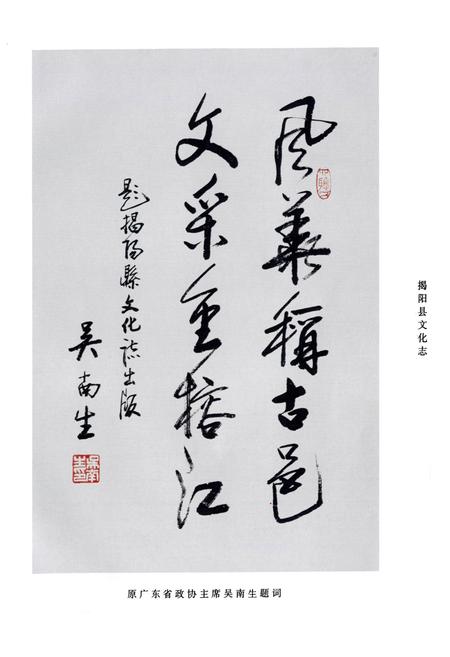 风華稱古邑
文采重榕江
题揭陽縣文化誌出版
吴南生
揭阳县文化志
原广东省政协主席吴南生题词